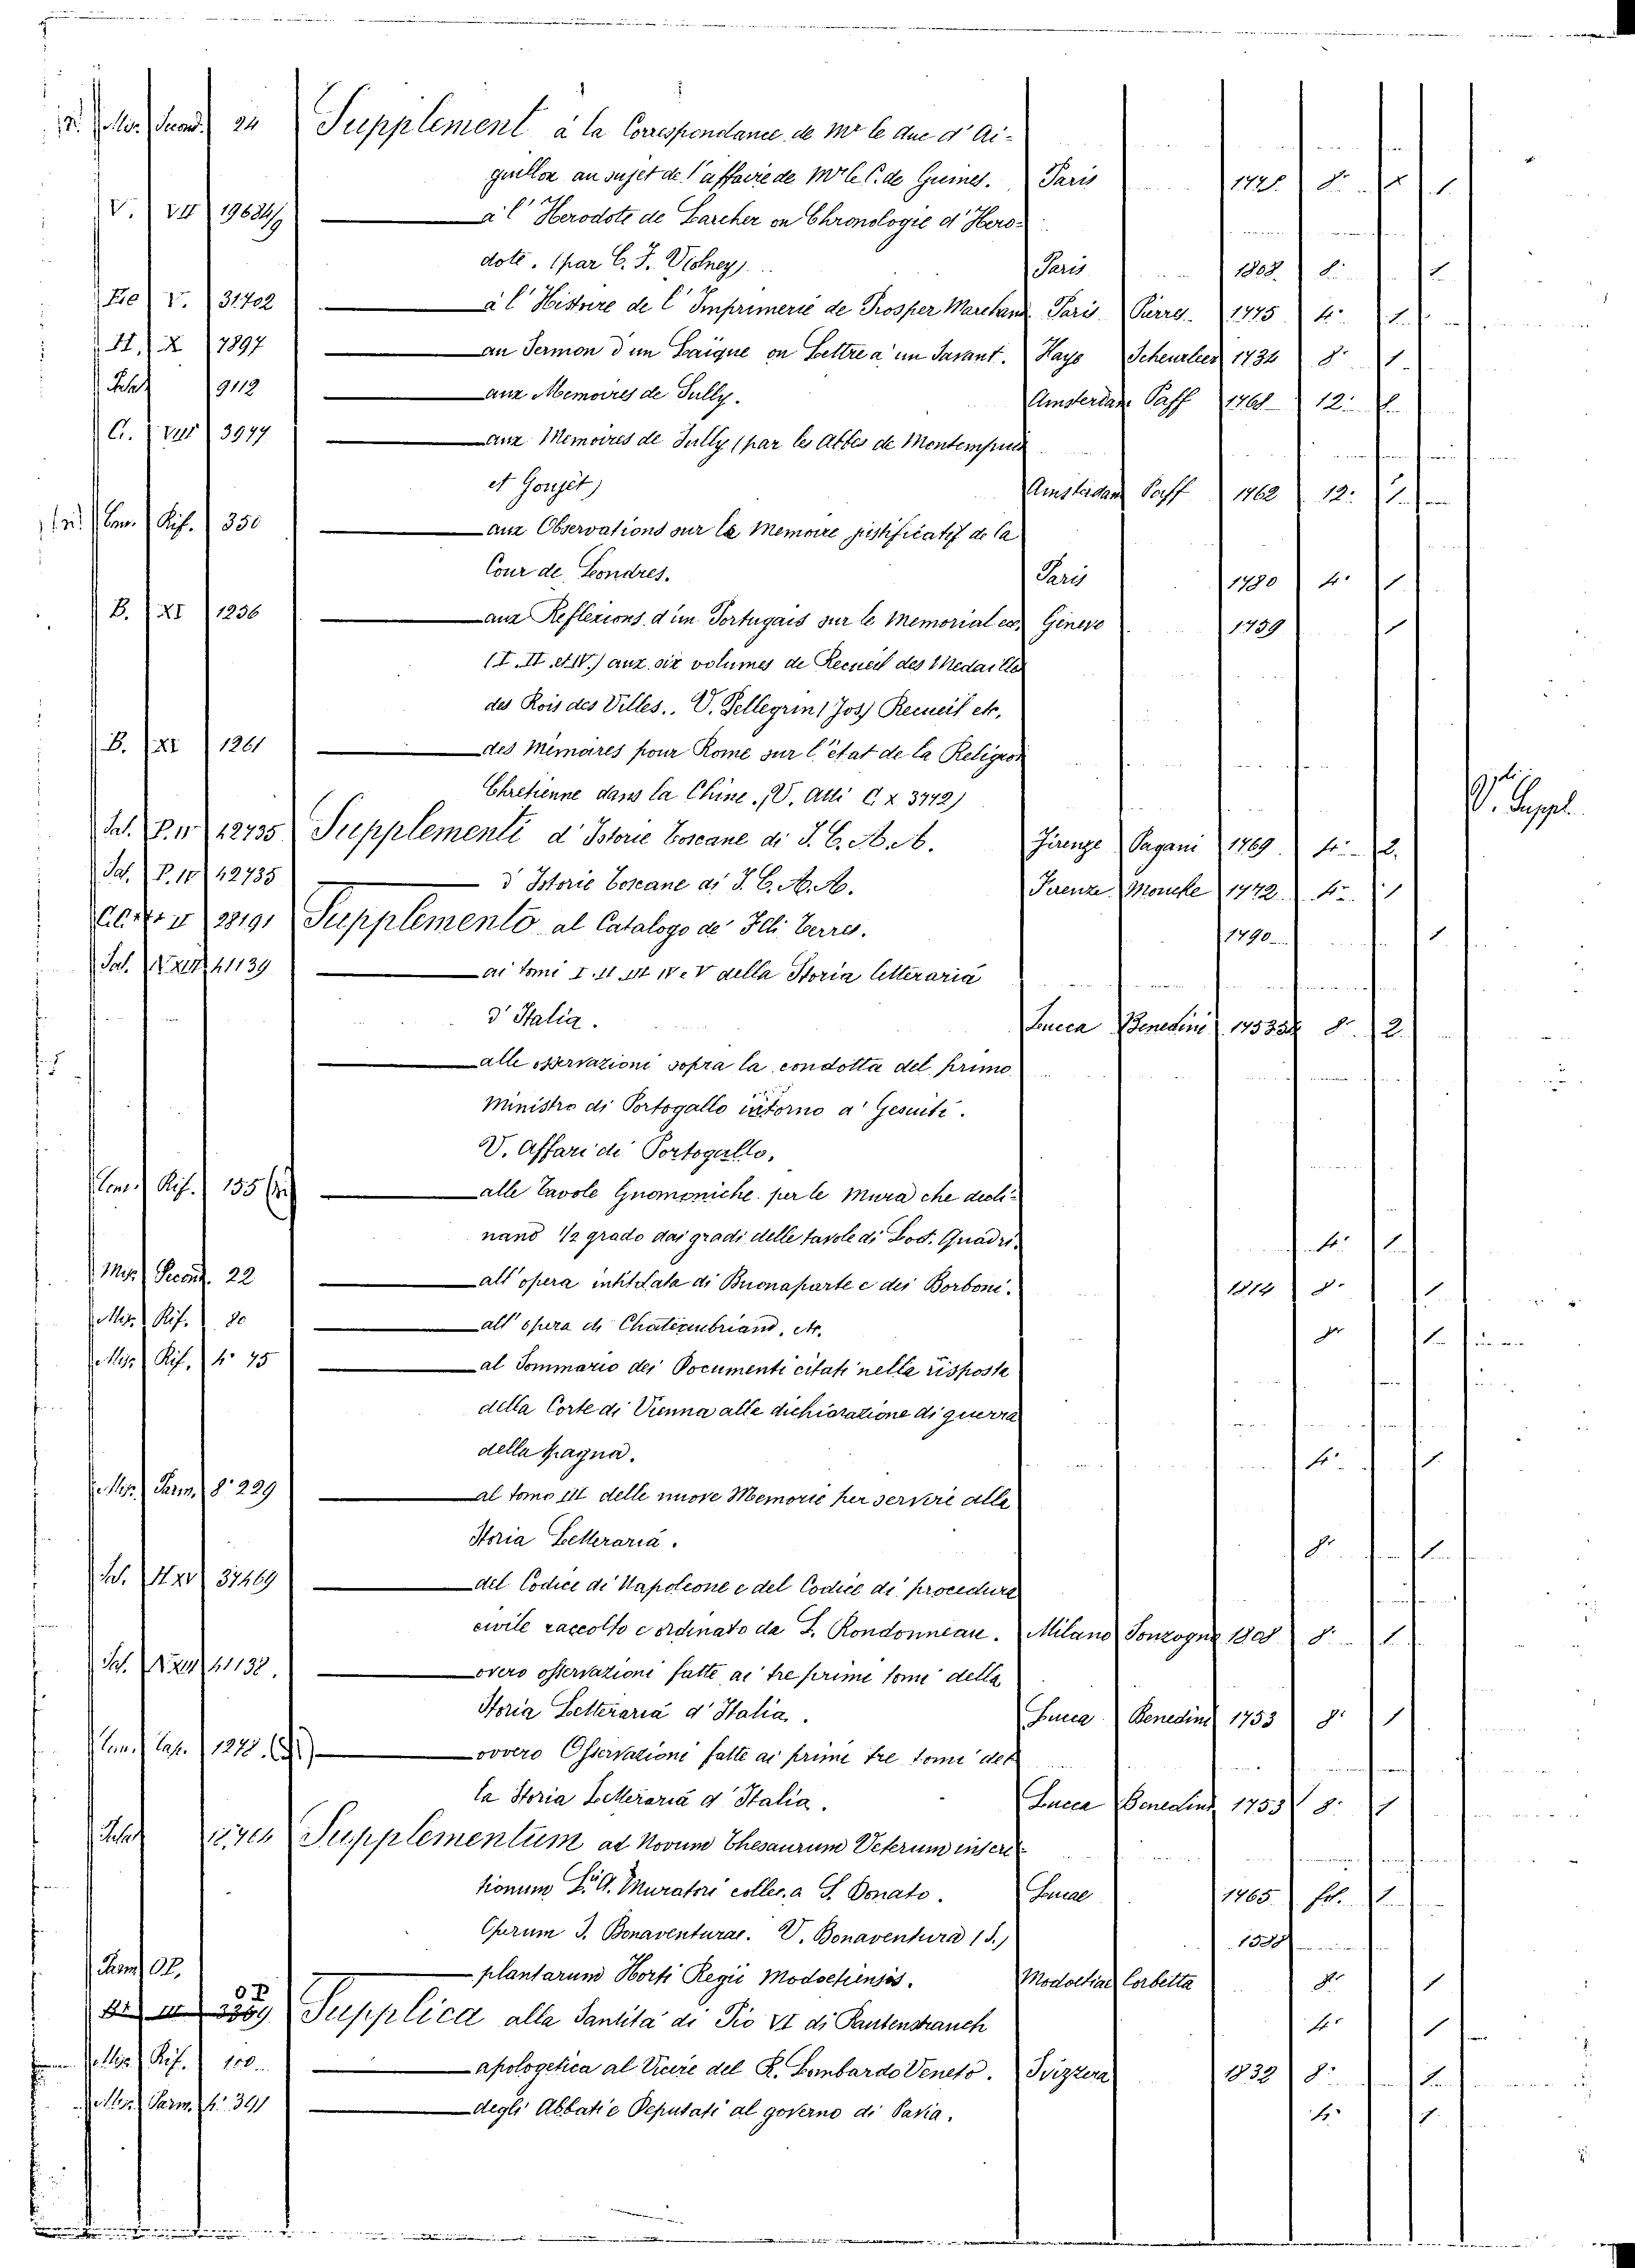 24 Supplement à la Correspondance de Mr le duc d' Ai-
guillon au sujet de l'affaire de Mr le C. de Guines. Paris 1775 8° 1
V. VII 19684/9 — a l' Herodote de Larcher on Chronologie d' Hero-
dote. (par C. F. Volney) Paris 1808 8° 1
V. 31702 — a l' Histoire de l' Imprimerie de Prosper Marchand Paris Pierres 1775 4° 1
H. X 7897 — au Sermon d'un Laique on Lettre a un Savant. Haye Scheurleer 1734 8° 1
9112 — aux Memoires de Sully. Amsterdam Paff 1761 12°
C. VIII 3977 — aux Memoires de Sully (par les Abbes de Montempuis
et Goujet) Amsterdam Paff 1762 12° 1
Rif. 350 — aux Observations sur le Memoire justificatif de la
Cour de Londres. Paris 1780 4° 1
B. XI 1236 — aux Reflexions d'un Portugais sur le Memorial ec. Geneve 1759 1
(I. II. et IV.) aux six volumes de Recueil des Medailles
des Rois des Villes.. V. Pellegrin (Jos) Recueil etc.
B. XI 1261 — des Mémoires pour Rome sur l'état de la Religion
Chretienne dans la Chine. (V. Atti C. X 3772)
V. Suppl.
P. IV 42735 Supplementi d' Istorie Toscane di I. C. A. A. Firenze Pagani 1769 4° 2.
P. IV 42735 — d' Istorie Toscane di I. C. A. A. Firenze Moucke 1772 4° 1
28191 Supplemento al Catalogo de' Flli Terres. 1790 1
41139 — ai tomi I. II. III IV e V della Storia letteraria
d' Italia. Lucca Benedini 1753 8° 2.
— alle osservazioni sopra la condotta del primo
Ministro di Portogallo intorno a' Gesuiti.
V. Affari di Portogallo,
Rif. 155 — alle Tavole Gnomoniche per le Mura che decli-
nano 1/2 grado dai gradi delle tavole di Lod. Quadri. 4° 1
22 — all' opera intitolata di Buonaparte e dei Borboni. 1814 8° 1
Misc. Rif. 80 — all' opera di Chateaubriand, etc. 8° 1
Misc. Rif. 4° 75 — al Sommario dei Documenti citati nella risposta
della Corte di Vienna alla dichiarazione di guerra
della Spagna. 4° 1
Parm. 8° 229 — al tomo III delle nuove Memorie per servire alla
Storia Letteraria. 8° 1
37469 — del Codice di Napoleone e del Codice di procedura
civile raccolto e ordinato da L. Rondonneau. Milano Sonzogno 1808 8° 1
41138. — overo osservazioni fatte ai tre primi tomi della
Storia Letteraria d' Italia. Lucca Benedini 1753 8° 1
Cap. 1278. — ovvero Osservazioni fatte ai primi tre tomi del-
la Storia Letteraria d' Italia. Lucca Benedini 1753 8° 1
Supplementum ad Novum Thesaurum Veterum inscri-
tionum L. A. Muratori colles. a S. Donato. Lucae 1765 fol. 1
Operum S. Bonaventurae. V. Bonaventura (S.) 1588
— plantarum Horti Regii Modoetiensis. Modoetiae Corbetta 8° 1
3369 Supplica alla Santità di Pio VI di Rautenstrauch 4° 1
Misc. Rif. 100 — apologetica al Vicerè del R. Lombardo Veneto. Svizzera 1832 8° 1
Parm. 4° 391 — degli Abbati e Deputati al governo di Pavia. 4° 1